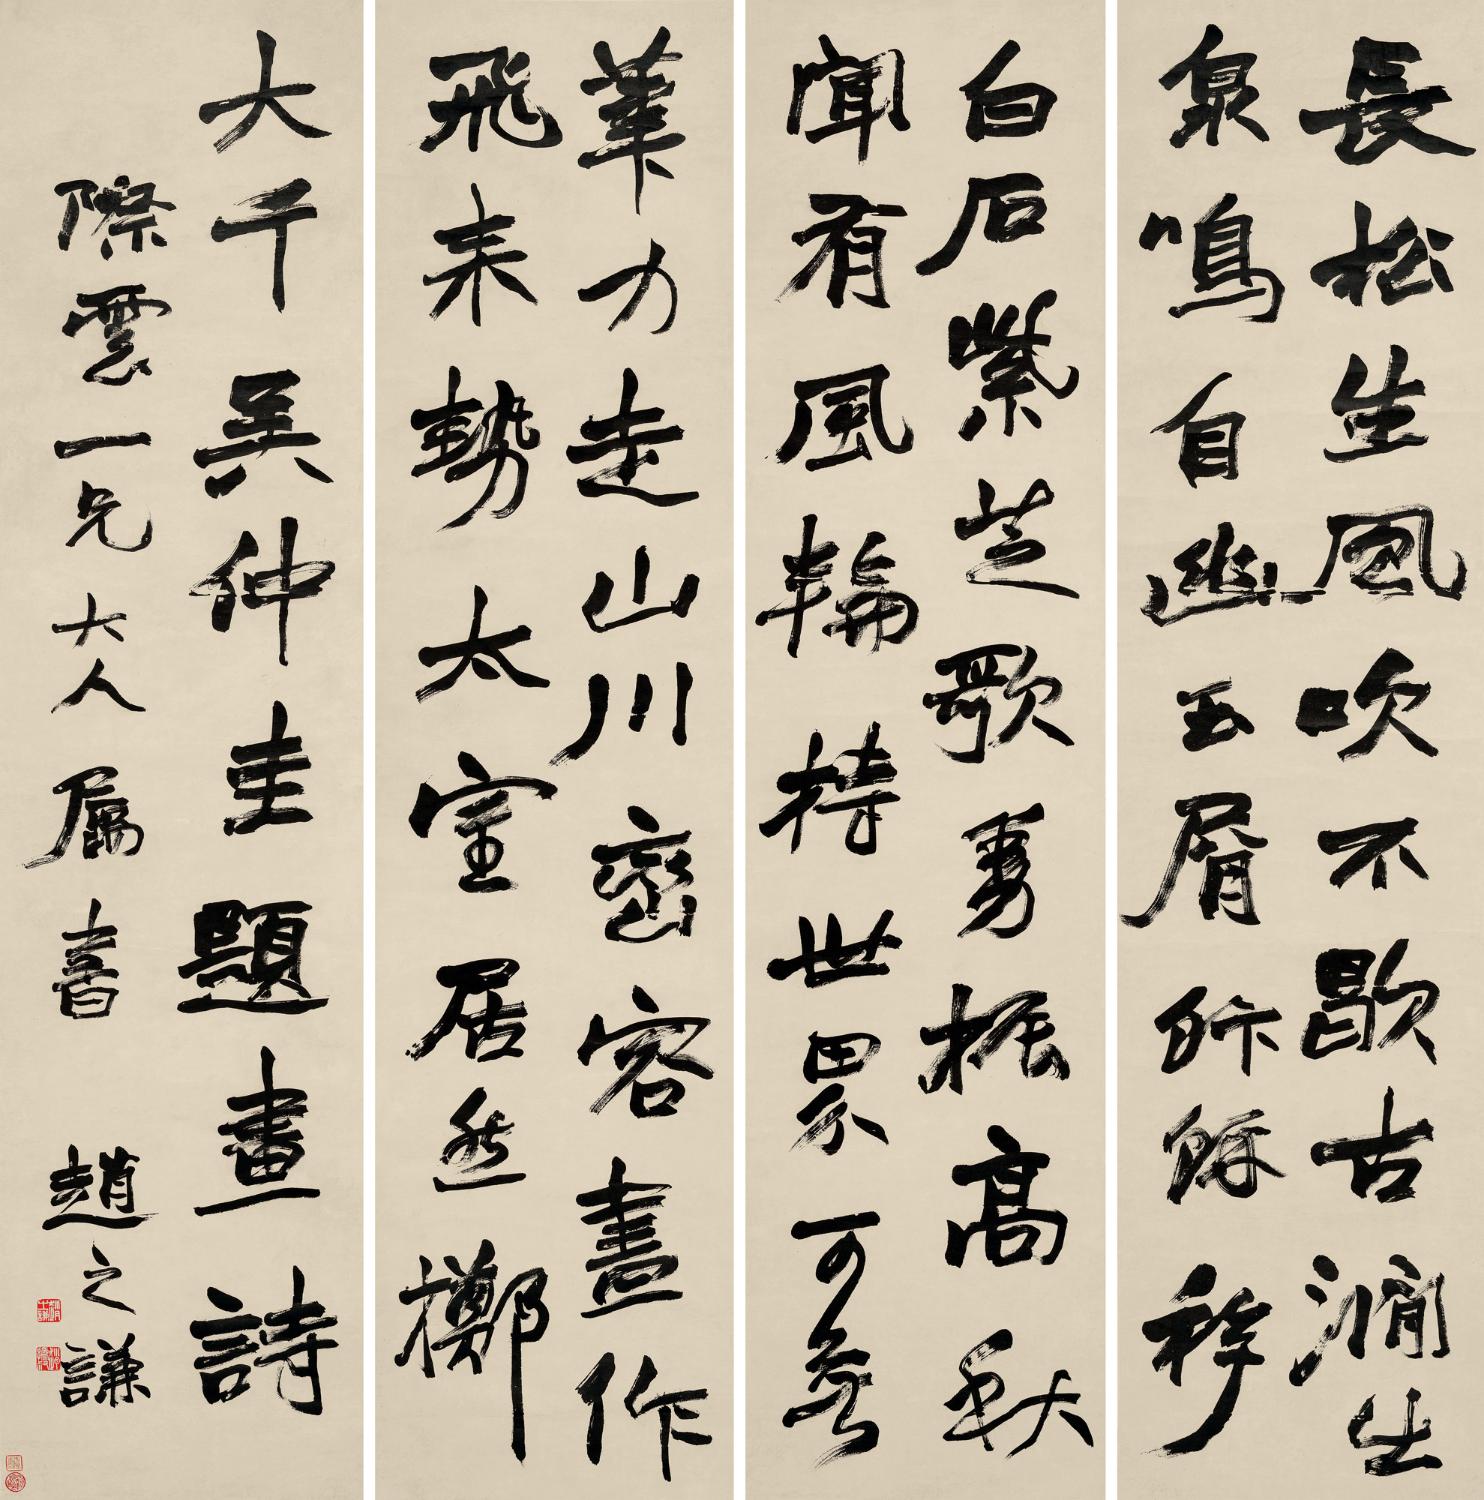 長松生風吹不歇古澗出
泉鳴自幽玉屑飣餘移
白石紫芝歌罷振高秋
聞有風輪持世界可無
筆力走山川巒容盡作
飛來勢太室居然擲
大千吳仲圭題畫詩
際雲一兄大人屬書
趙之謙